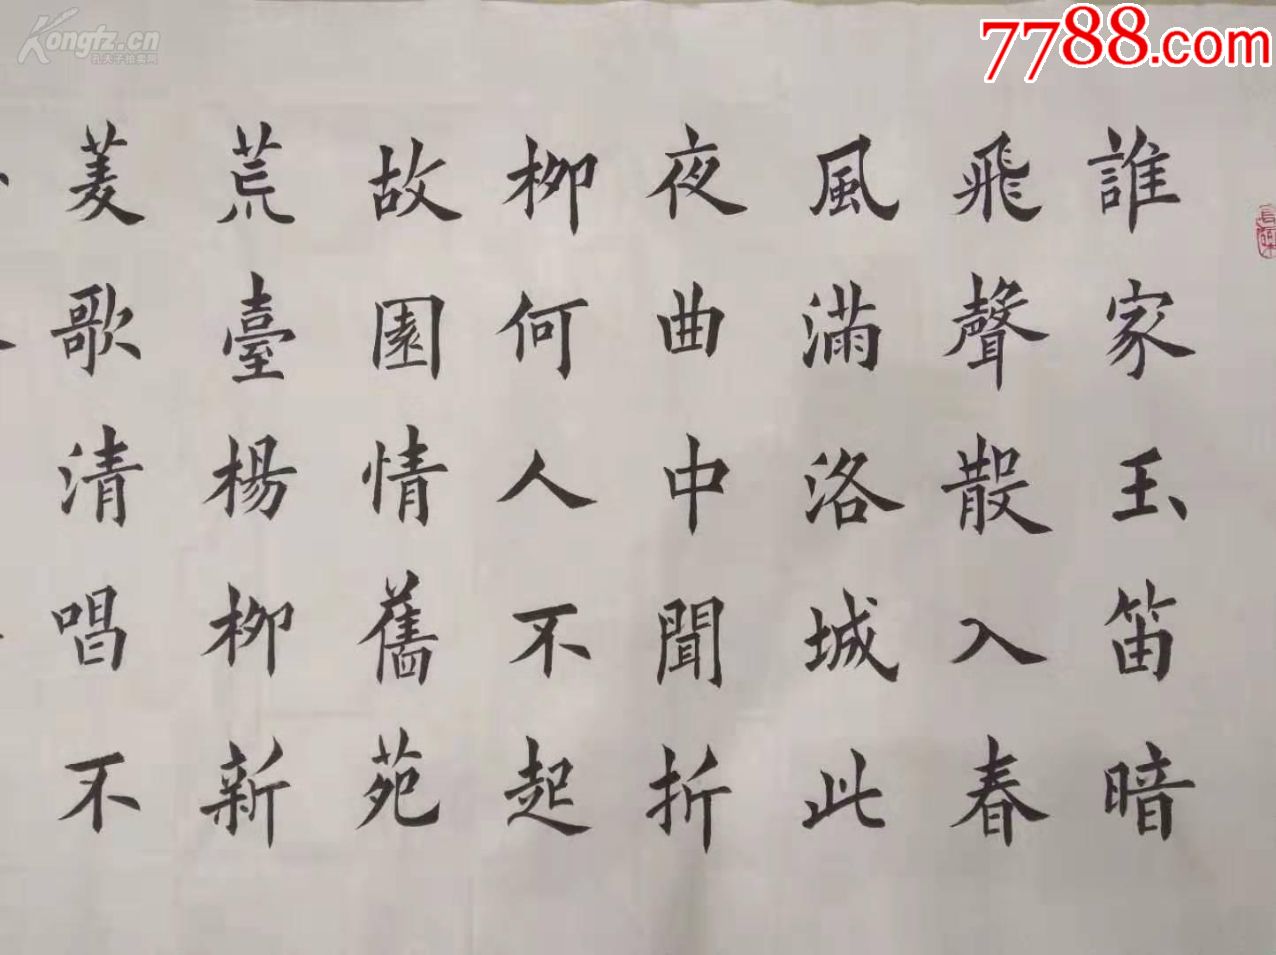 誰家玉笛暗
飛聲散入春
風滿洛城此
夜曲中聞折
柳何人不起
故園情舊苑
荒臺楊柳新
菱歌清唱不
7788.com
Kongfz.cn
孔夫子拍卖网